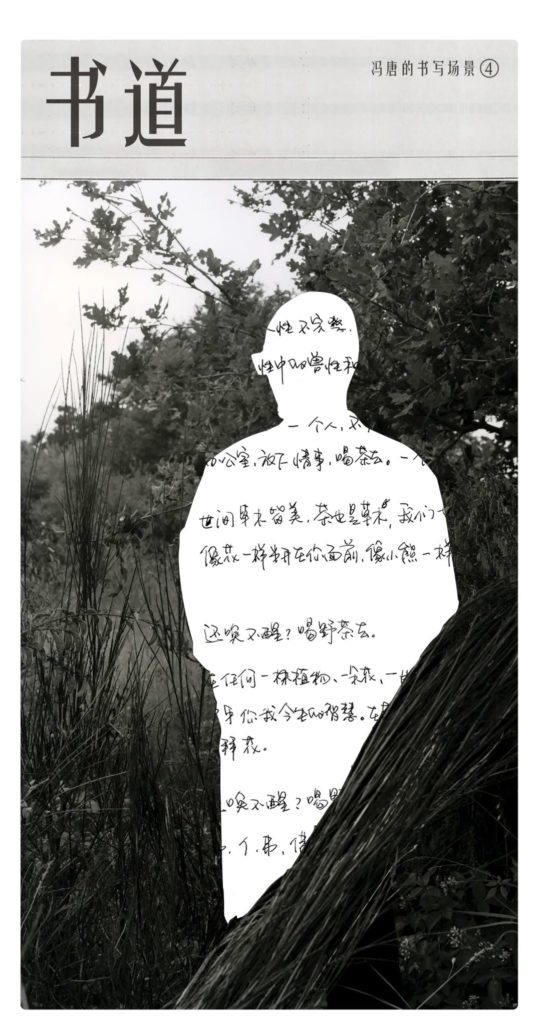 书道
冯唐的书写场景④
性不完整.
性中的兽性和
一个人,不
办公室,放下情事,喝茶去。一个
世间草木皆美,茶也是草木,我们一
像花一样开在你面前,像小熊一样
还唤不醒?喝野茶去。
在任何一株植物、一朵花,一
你我今生的智慧。在
拜花。
唤不醒?喝野
个.弗.